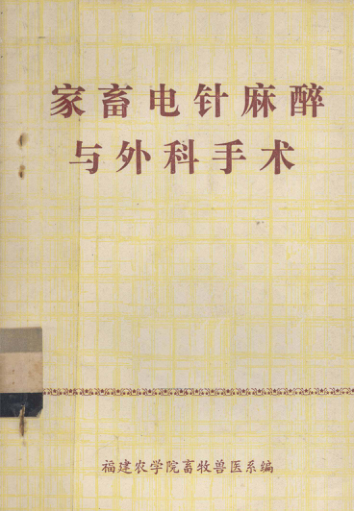 家畜电针麻醉
与外科手术
福建农学院畜牧兽医系编